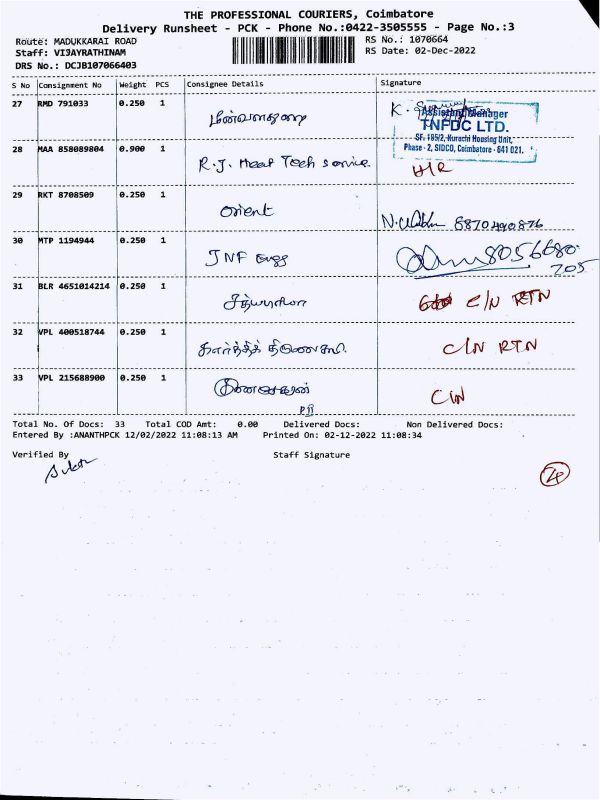 THE PROFESSIONAL COURIERS, Coimbatore
Delivery Runsheet - PCK - Phone No.:0422-3505555 - Page No.:3
Route: MADUKKARAI ROAD
RS No.: 1070664
Staff: VIJAYRATHINAM
RS Date: 02-Dec-2022
DRS No.: DCJB107066403
S No Consignment No Weight PCS Consignee Details Signature
27 RMD 791033 0.250 1 மீன்வளத்துறை K.
Assistant Manager
TNFDC LTD.
SF. 195/2, Kurachi Housing Unit,
Phase - 2, SIDCO, Coimbatore - 641 021.
28 MAA 858089804 0.900 1 R.J. Heat Tech service
H/R
29 RKT 8708509 0.250 1 orient
30 MTP 1194944 0.250 1 JNF Engg 8056680
705
31 BLR 4651014214 0.250 1 சத்யபாமா C/N RTN
32 VPL 400518744 0.250 1 C/N RTN
33 VPL 215688900 0.250 1 C/N
Total No. Of Docs: 33 Total COD Amt: 0.00 Delivered Docs: Non Delivered Docs:
Entered By :ANANTHPCK 12/02/2022 11:08:13 AM Printed On: 02-12-2022 11:08:34
Verified By Staff Signature